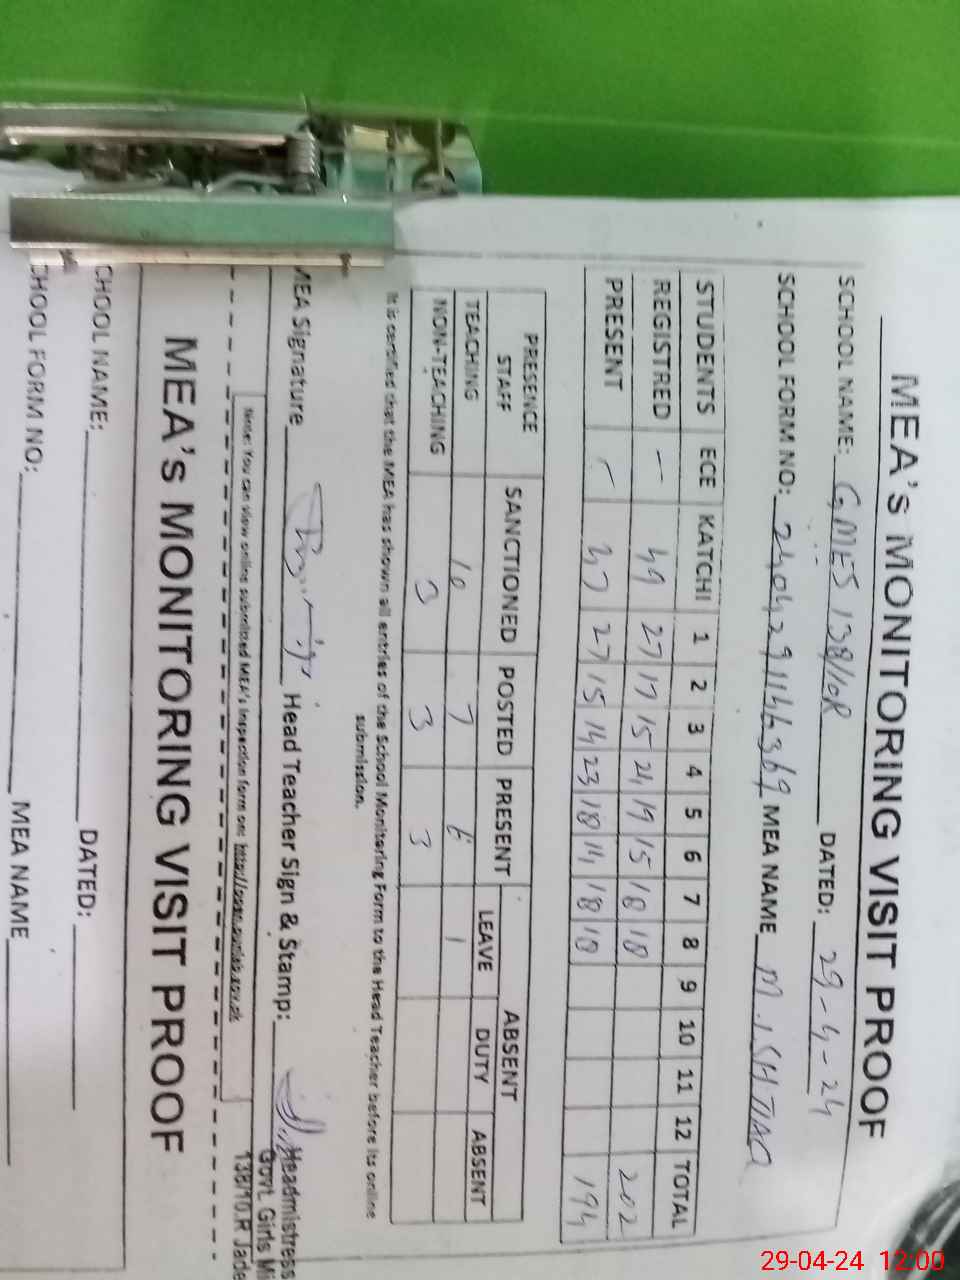 MEA's MONITORING VISIT PROOF
SCHOOL NAME: GMES 138/10R DATED: 29-4-24
SCHOOL FORM NO: 2404291146369 MEA NAME M. ISHTIAQ
STUDENTS ECE KATCHI 1 2 3 4 5 6 7 8 9 10 11 12 TOTAL
REGISTRED - 49 27 17 15 24 19 15 18 18 202
PRESENT - 47 27 15 14 23 18 14 18 18 194
PRESENCE STAFF SANCTIONED POSTED PRESENT ABSENT
LEAVE DUTY ABSENT
TEACHING 10 7 6 1
NON-TEACHING 3 3 3
It is certified that the MEA has shown all entries of the School Monitoring Form to the Head Teacher before its online
submission.
MEA Signature Head Teacher Sign & Stamp:
Headmistress
Govt. Girls Mi
138/10.R Jade
Note: You can view online submitted MEA's inspection form on:
MEA's MONITORING VISIT PROOF
CHOOL NAME: DATED:
CHOOL FORM NO: MEA NAME
29-04-24 12:00